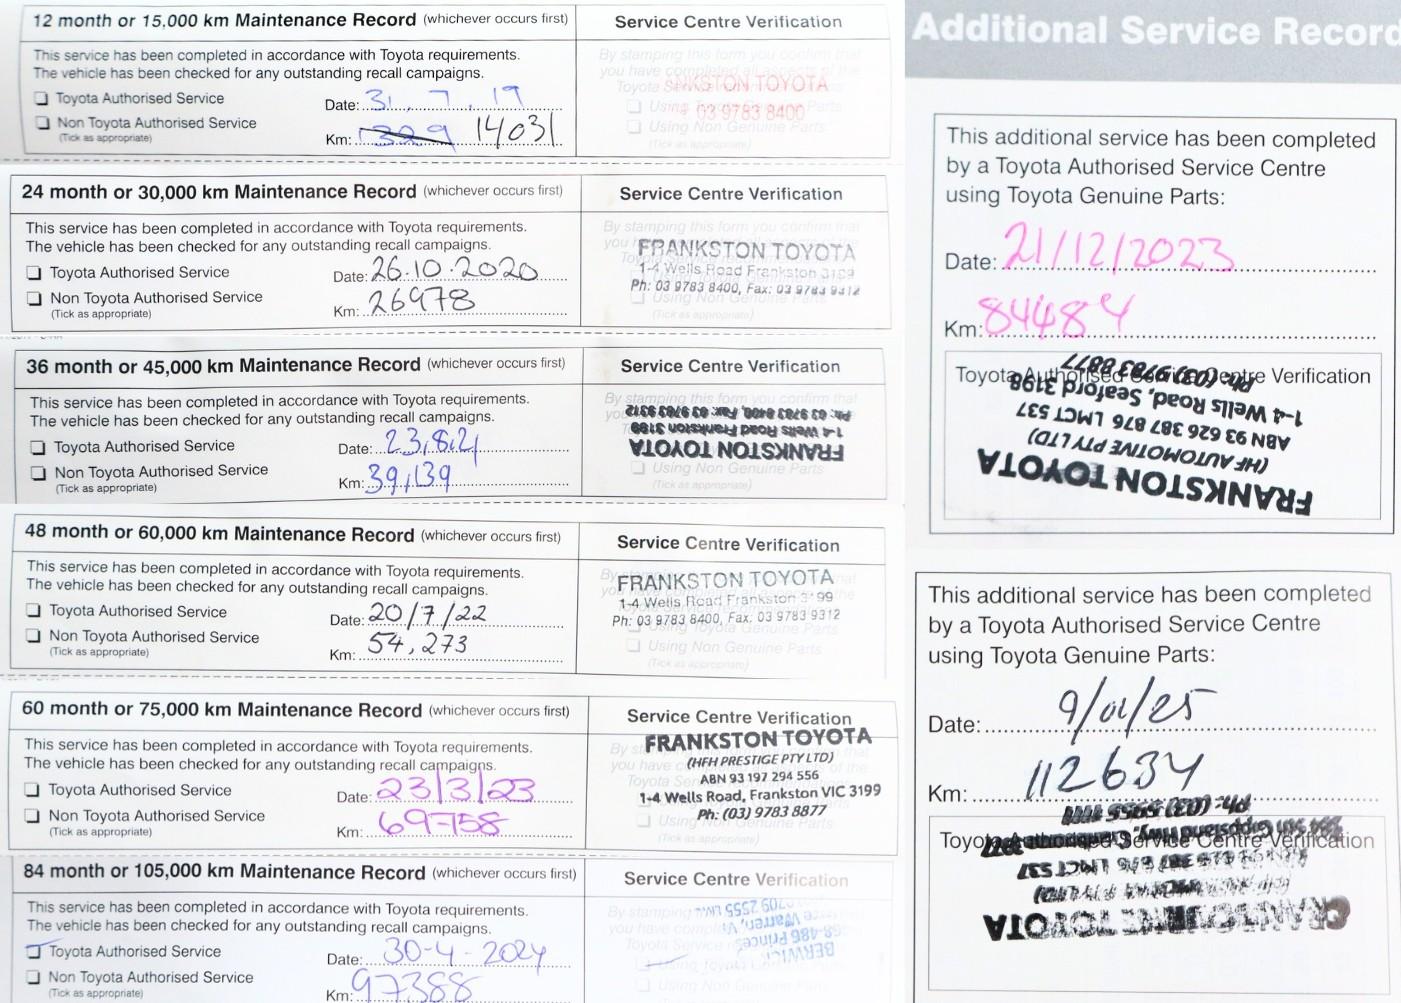 12 month or 15,000 km Maintenance Record (whichever occurs first)
Service Centre Verification
This service has been completed in accordance with Toyota requirements.
The vehicle has been checked for any outstanding recall campaigns.
Toyota Authorised Service
Non Toyota Authorised Service
(Tick as appropriate)
Date: 31.7.19
Km: 14031
By stamping this form you confirm that
you have completed all aspects of the
Toyota Service
Using Genuine Parts
Using Non Genuine Parts
(Tick as appropriate)
TOYOTA
03 9783 8400
24 month or 30,000 km Maintenance Record (whichever occurs first)
Service Centre Verification
This service has been completed in accordance with Toyota requirements.
The vehicle has been checked for any outstanding recall campaigns.
Toyota Authorised Service
Non Toyota Authorised Service
(Tick as appropriate)
Date: 26.10.2020
Km: 26978
By stamping this form you confirm that
FRANKSTON TOYOTA
1-4 Wells Road Frankston 3199
Ph: 03 9783 8400, Fax: 03 9783 9312
Using Non Genuine Parts
(Tick as appropriate)
36 month or 45,000 km Maintenance Record (whichever occurs first)
Service Centre Verification
This service has been completed in accordance with Toyota requirements.
The vehicle has been checked for any outstanding recall campaigns.
Toyota Authorised Service
Non Toyota Authorised Service
(Tick as appropriate)
Date: 23.8.21
Km: 39,139
By stamping this form you confirm that
FRANKSTON TOYOTA
1-4 Wells Road Frankston 3199
Ph: 03 9783 8400, Fax: 03 9783 9312
Using Non Genuine Parts
(Tick as appropriate)
48 month or 60,000 km Maintenance Record (whichever occurs first)
Service Centre Verification
This service has been completed in accordance with Toyota requirements.
The vehicle has been checked for any outstanding recall campaigns.
Toyota Authorised Service
Non Toyota Authorised Service
(Tick as appropriate)
Date: 20/7/22
Km: 54,273
FRANKSTON TOYOTA
1-4 Wells Road Frankston 3199
Ph: 03 9783 8400, Fax: 03 9783 9312
Using Toyota Genuine Parts
Using Non Genuine Parts
(Tick as appropriate)
60 month or 75,000 km Maintenance Record (whichever occurs first)
Service Centre Verification
This service has been completed in accordance with Toyota requirements.
The vehicle has been checked for any outstanding recall campaigns.
Toyota Authorised Service
Non Toyota Authorised Service
(Tick as appropriate)
Date: 23/3/23
Km: 69758
FRANKSTON TOYOTA
(HFH PRESTIGE PTY LTD)
ABN 93 197 294 556
1-4 Wells Road, Frankston VIC 3199
Ph: (03) 9783 8877
Using Non Genuine Parts
(Tick as appropriate)
84 month or 105,000 km Maintenance Record (whichever occurs first)
Service Centre Verification
This service has been completed in accordance with Toyota requirements.
The vehicle has been checked for any outstanding recall campaigns.
Toyota Authorised Service
Non Toyota Authorised Service
(Tick as appropriate)
Date: 30-4-2024
Km: 97388
By stamping
BERWICK
Princes
Warren,
Using Non Genuine Parts
(Tick as appropriate)
Additional Service Record
This additional service has been completed
by a Toyota Authorised Service Centre
using Toyota Genuine Parts:
Date: 21/12/2023
Km: 84484
Toyota Authorised Service Centre Verification
FRANKSTON TOYOTA
(HF AUTOMOTIVE PTY LTD)
ABN 93 626 387 876 LMCT 537
1-4 Wells Road, Seaford 3198
Ph: (03) 9783 8877
This additional service has been completed
by a Toyota Authorised Service Centre
using Toyota Genuine Parts:
Date: 9/01/25
Km: 112634
Toyota Authorised Service Centre Verification
CRANBOURNE TOYOTA
LMCT 537
Ph: (03) 5955